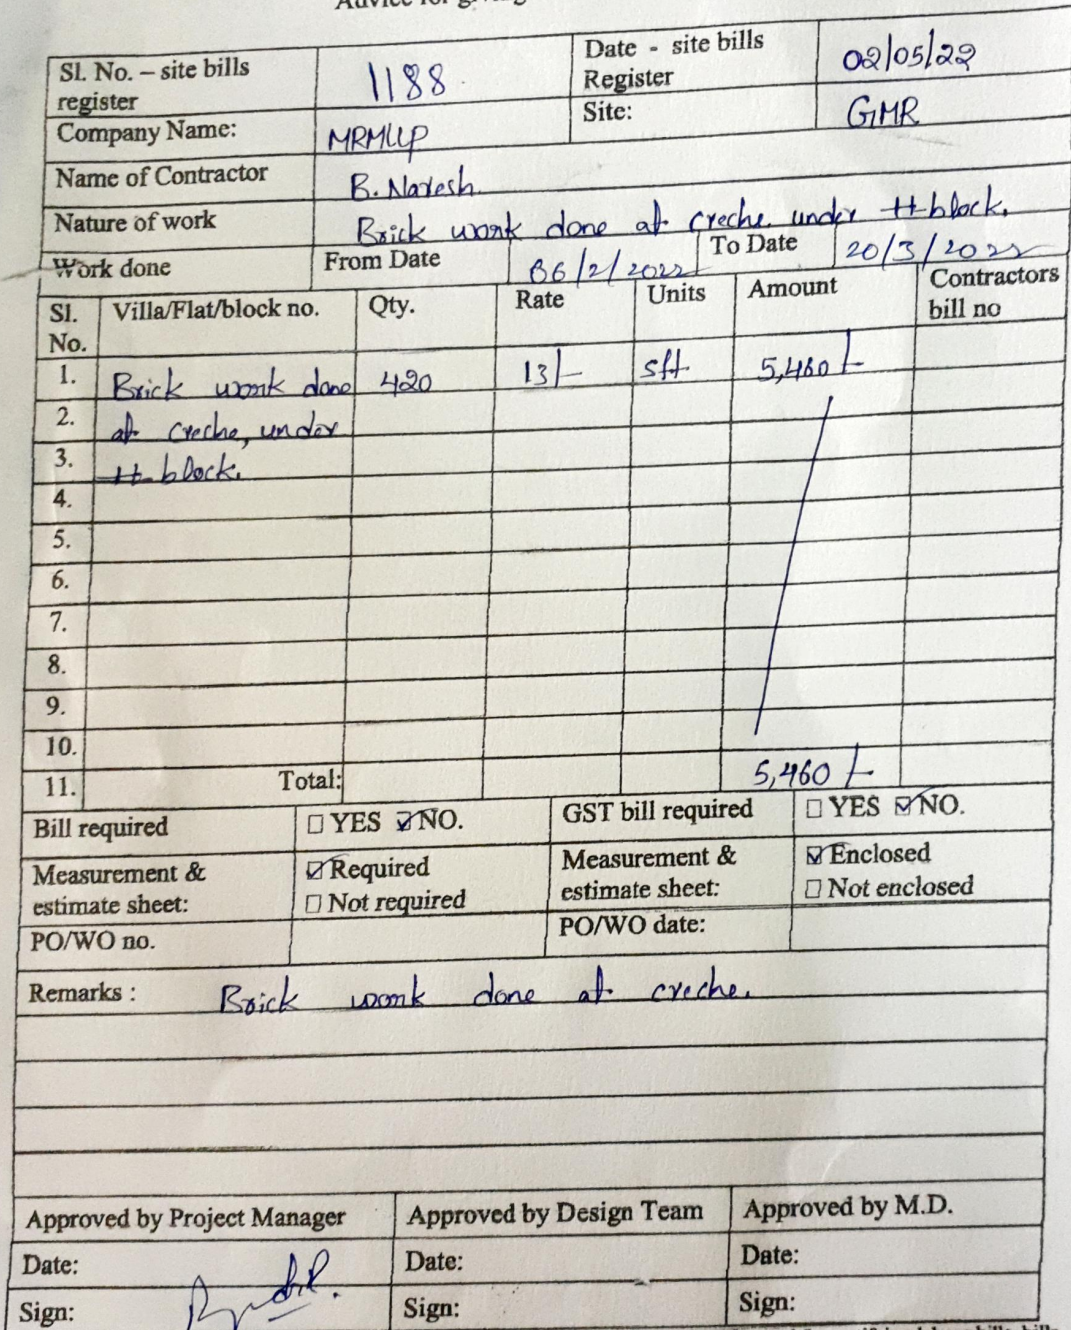 Sl. No. – site bills register 1188 Date - site bills Register 02/05/22
Company Name: MRMLLP Site: GMR
Name of Contractor B. Naresh
Nature of work Brick work done at creche under H-block.
Work done From Date 06/2/2022 To Date 20/3/2022
Sl. No. Villa/Flat/block no. Qty. Rate Units Amount Contractors bill no
1. Brick work done 420 13/- sft 5,460/-
2. at creche, under
3. H-block.
4.
5.
6.
7.
8.
9.
10.
11. Total: 5,460/-
Bill required ☐ YES ☑ NO. GST bill required ☐ YES ☑ NO.
Measurement & estimate sheet: ☑ Required ☐ Not required Measurement & estimate sheet: ☑ Enclosed ☐ Not enclosed
PO/WO no. PO/WO date:
Remarks : Brick work done at creche.
Approved by Project Manager Approved by Design Team Approved by M.D.
Date: Date: Date:
Sign: Sign: Sign: